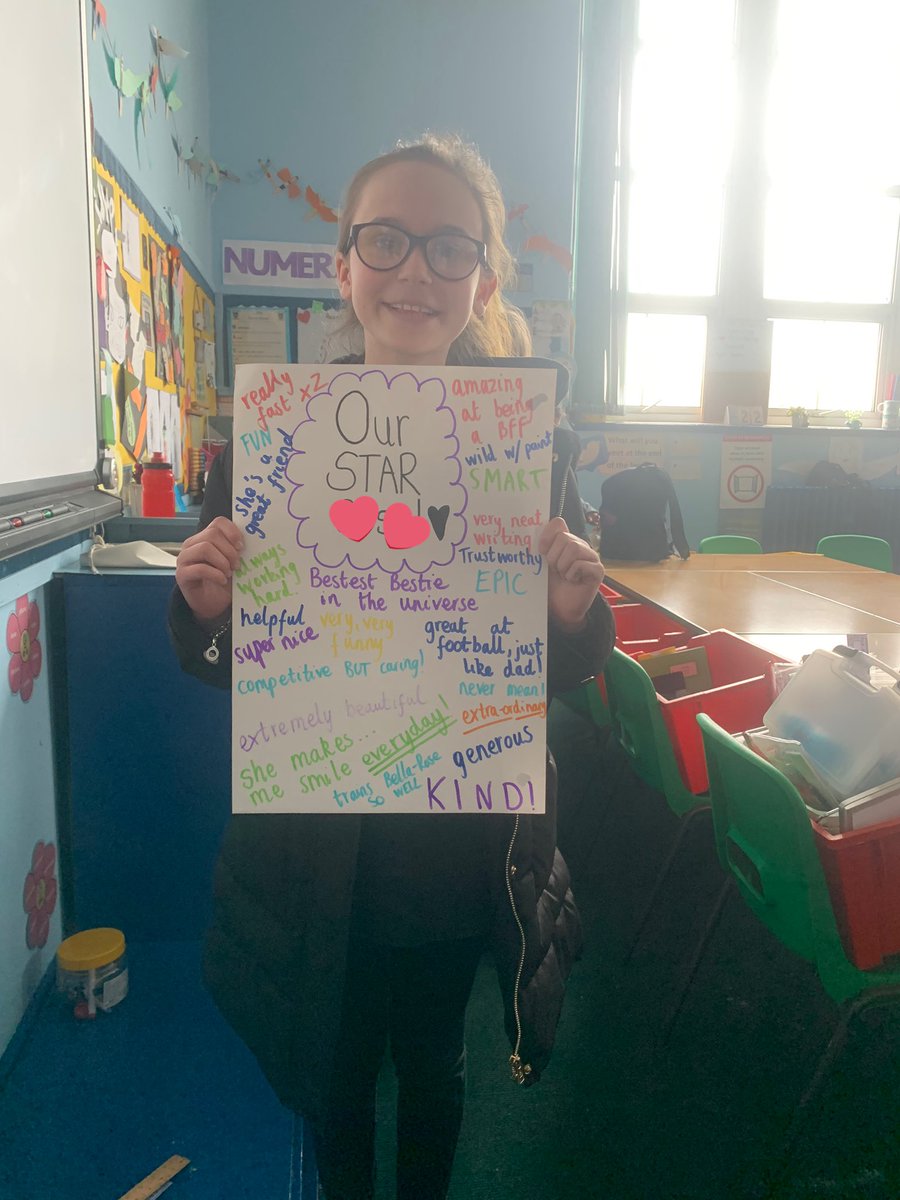 NUMERA
really
fast x2
FUN
she's a
great friend
Our
STAR
amazing
at being
a BFF
wild w/ paint
SMART
very neat
writing
Trustworthy
EPIC
always
working
hard!
Bestest Bestie
in the universe
helpful
super nice
very, very
funny
great at
football, just
like dad!
competitive BUT caring!
never mean!
extra-ordinary
extremely beautiful
she makes...
me smile everyday!
generous
trains Bella-Rose
SO WELL
KIND!
What will you
at the end of the